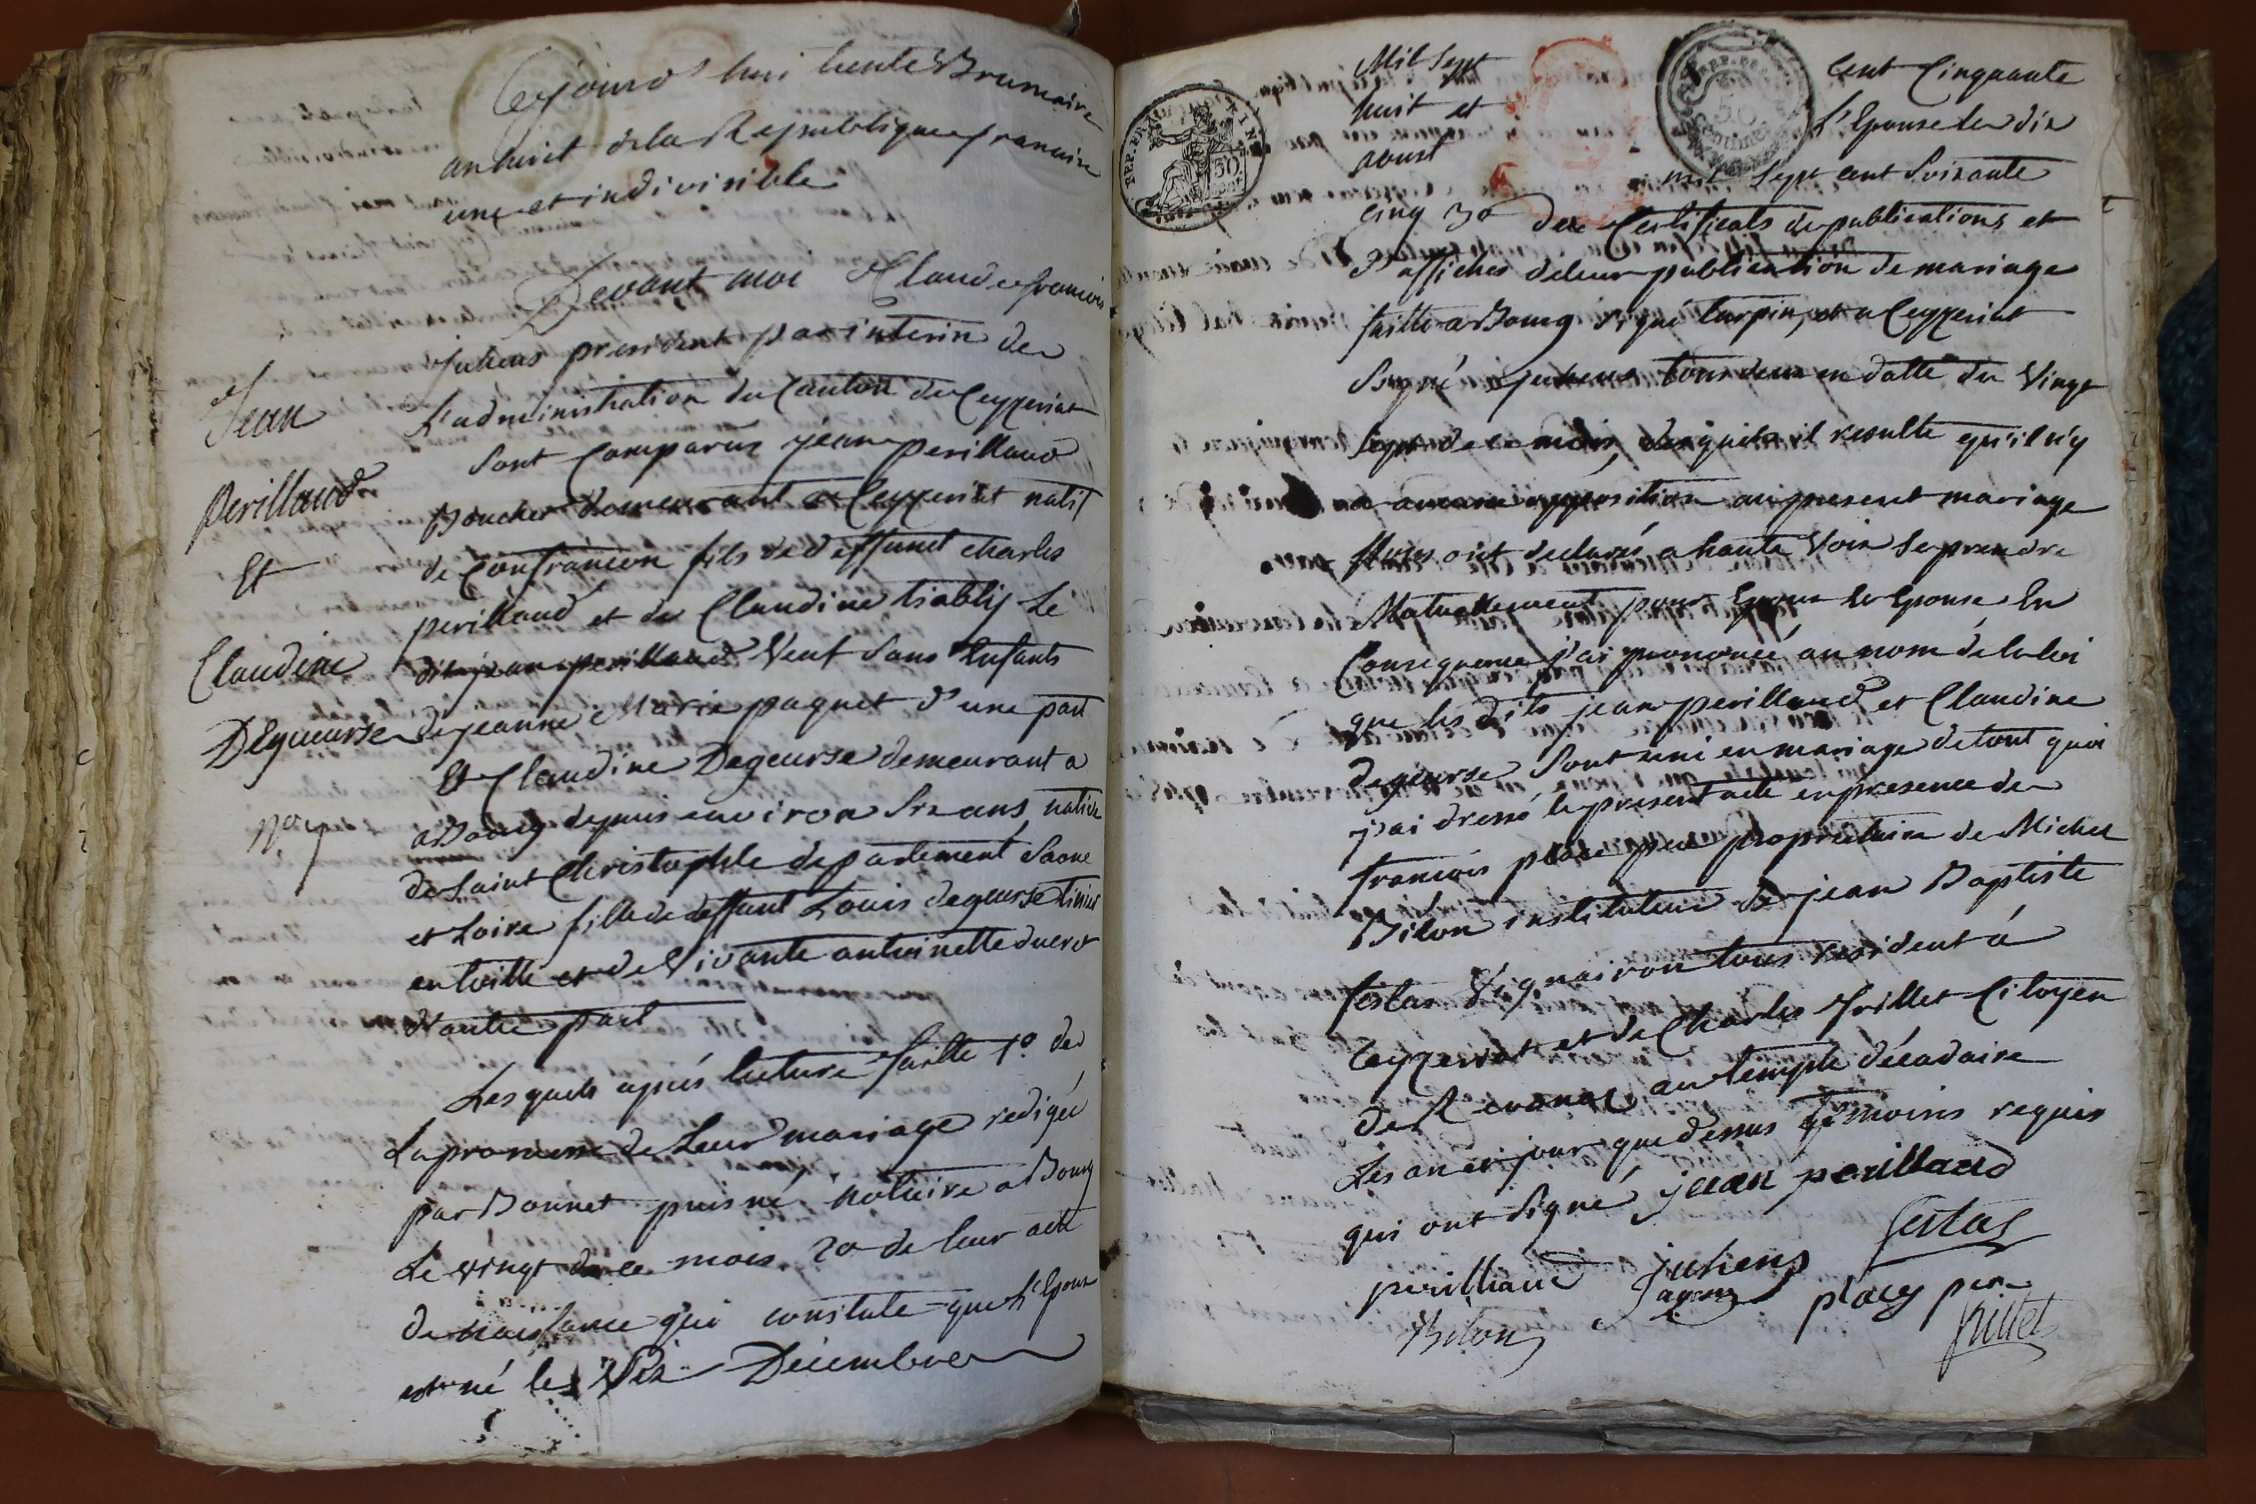 Cejourd'hui trente Brumaire
an huit de la Republique francaise
une et indivisible
Devant moi Claude francois
juhens president par interin de
L'administration du Canton de Ceyzeriat
sont Comparus jean perillaud
Boucher demeurant a Ceyzeriat natif
de Confrancon fils de deffunct charles
perillaud et de Claudine Le
dit jean perillaud Veuf sans Enfants
de jeanne Marie paquet d'une part
Et Claudine Degeurse demeurant a
a Bourg depuis environ six ans, native
de Saint Christophle departement Saone
et Loire fille de deffunt Louis degeurse
en toille et de Vivante antoinette
d'autre part
Lesquels après lecture faitte 1º de
La promesse de Leur mariage redigée
par Bonnet puisné notaire a Bourg
Le vingt de ce mois 2º de leur acte
de naissance qui constate que L'Epoux
est né le Dix Decembre
Jean
Perillaud
Et
Claudine
Degueurse
Nº 7
REP. FRA
50
Mil Sept cent Cinquante
huit et L'Epouse le dix
aoust mil sept cent Soixante
Cinq 3º des Certificats de publications et
d'affiches de leur publication de mariage
faitte a Bourg signé turpin, et a Ceyzeriat
Signé juhens tous deux en datte du Vingt
Sept de ce mois, desquels il resulte qu'il n'y
a aucune opposition au present mariage
Eux ont declarés a haute Voix Se prendre
Mutuellement pour Epoux et Epouse En
Consequence j'ai prononcé au nom de la loi
que les dits jean perillaud et Claudine
degeurse sont uni en mariage de tout quoi
j'ai dressé le present acte en presence de
francois place pere proprietaire de Michel
Bilon instituteur de jean Baptiste
festas Vigneron tous resident à
Ceyzeriat et de Charles frillet Citoyen
de Revonas au temple décadaire
Les an et jour que dessus temoins requis
qui ont signé jean perillaud
perilliaud juhens festas
agent place pere
Bilon frillet